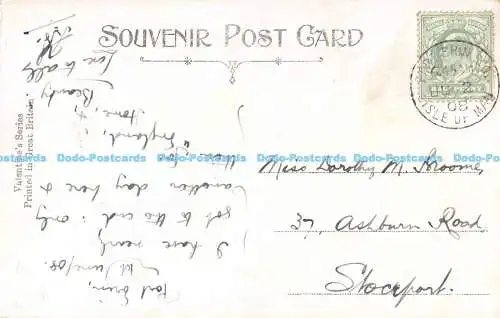 SOUVENIR POST CARD
Valentine's Series
Printed in Great Britain
Port Erin,
June/08.
I have nearly
got to the end: only
another day here &
then "for
England,
Home, &
Beauty
Love to all
PORT ERIN
JU 2
08
ISLE OF MAN
Miss Dorothy M. Broome,
37, Ashburn Road,
Stockport.
Dodo-Postcards Dodo-Postcards Dodo-Postcards Dodo-Postcards Dodo-Postcards Dodo-Postcards